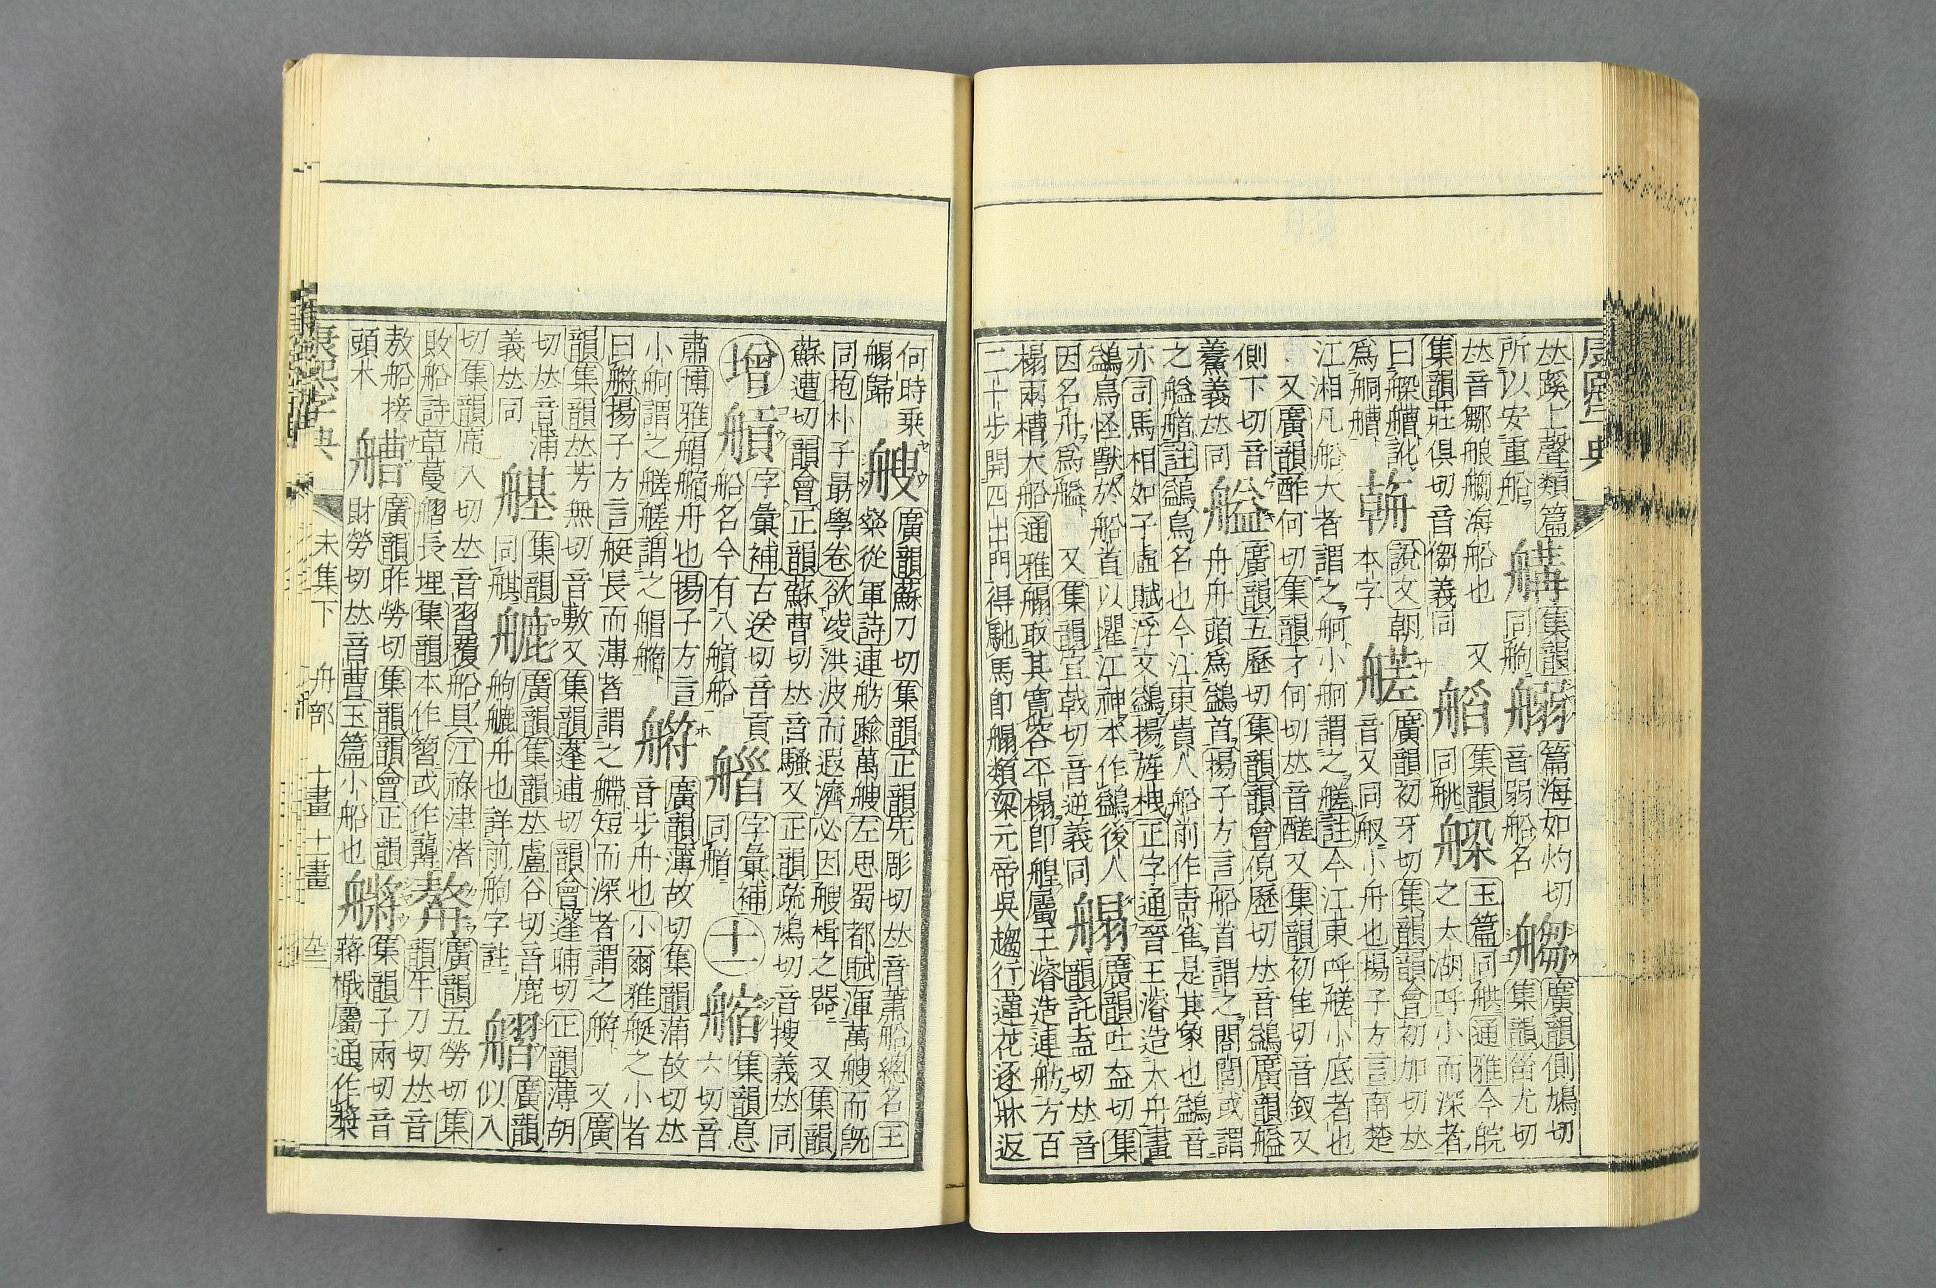 康熙字典
𠀤蹊上聲類篇
所以安重船
集韻
篇海如灼切
音弱船名
廣韻側鳩切
集韻甾尤切
𠀤音鄒艆海船也 又
集韻莊俱切音㑳義同
集韻
玉篇同通雅今皖
之太湖呼小而深者
曰艚訛
爲艚
說文朝
本字
艖
廣韻初牙切集韻韻會初加切𠀤
音叉同小舟也揚子方言南楚
江湘凡船大者謂之舸小舸謂之艖註今江東呼艖小底者也
又廣韻酢何切集韻才何切𠀤音醝又集韻初隹切音釵又
側下切音
鮺義𠀤同
艗
廣韻五歷切集韻韻會倪歷切𠀤音鷁廣韻艗
舟舟頭爲鷁首揚子方言船首謂之閤閭或謂
之艗艏註鷁鳥名也今江東貴人船前作靑雀是其象也鷁音
亦司馬相如子虛賦浮文鷁揚旌栧正字通晉王濬造大舟畫
鷁鳥怪獸於船首以懼江神本作鷁後人
因名舟爲艗 又集韻宜戟切音逆義同
䑽
廣韻吐盍切集
韻託盍切𠀤音
榻兩槽大船通雅䑽取其寬平榻卽艎屬王濬造連舫方百
二十步開四出門得馳馬卽䑽類梁元帝吳趨行蓮花逐牀返
何時乗
䑽歸
艘
廣韻蘇刀切集韻正韻先彫切𠀤音蕭船總名王
粲從軍詩連舫踰萬艘左思蜀都賦渾萬艘而旣
同抱朴子最學卷欲凌洪波而遐濟必因艘楫之器 又集韻
蘇遭切韻會正韻蘇曹切𠀤音騷又正韻疏鳩切音搜義𠀤同
增
字彙補古送切音貢
船名今有八船
字彙補
十一
集韻息
六切音
肅博雅舟也揚子方言
小舸謂之艖艖謂之艒
廣韻薄故切集韻蒲故切𠀤
音步舟也小爾雅艇之小者
曰揚子方言艇長而薄者謂之艜短而深者謂之 又廣
韻集韻𠀤芳無切音敷又集韻蓬逋切韻會蓬晡切正韻薄胡
切𠀤音蒲
義𠀤同
集韻
廣韻集韻𠀤盧谷切音鹿
舟也詳前字註
廣韻
似入
切集韻席入切𠀤音習覆船具江祿津渚
敗船詩草蔓長堙集韻本作或作
廣韻五勞切集
韻牛刀切𠀤音
敖船接
頭木
艚
廣韻昨勞切集韻韻會正韻
財勞切𠀤音曹玉篇小船也
集韻子兩切音
蔣檝屬通作槳
康熙字典 未集下 舟部 十畫 十一畫